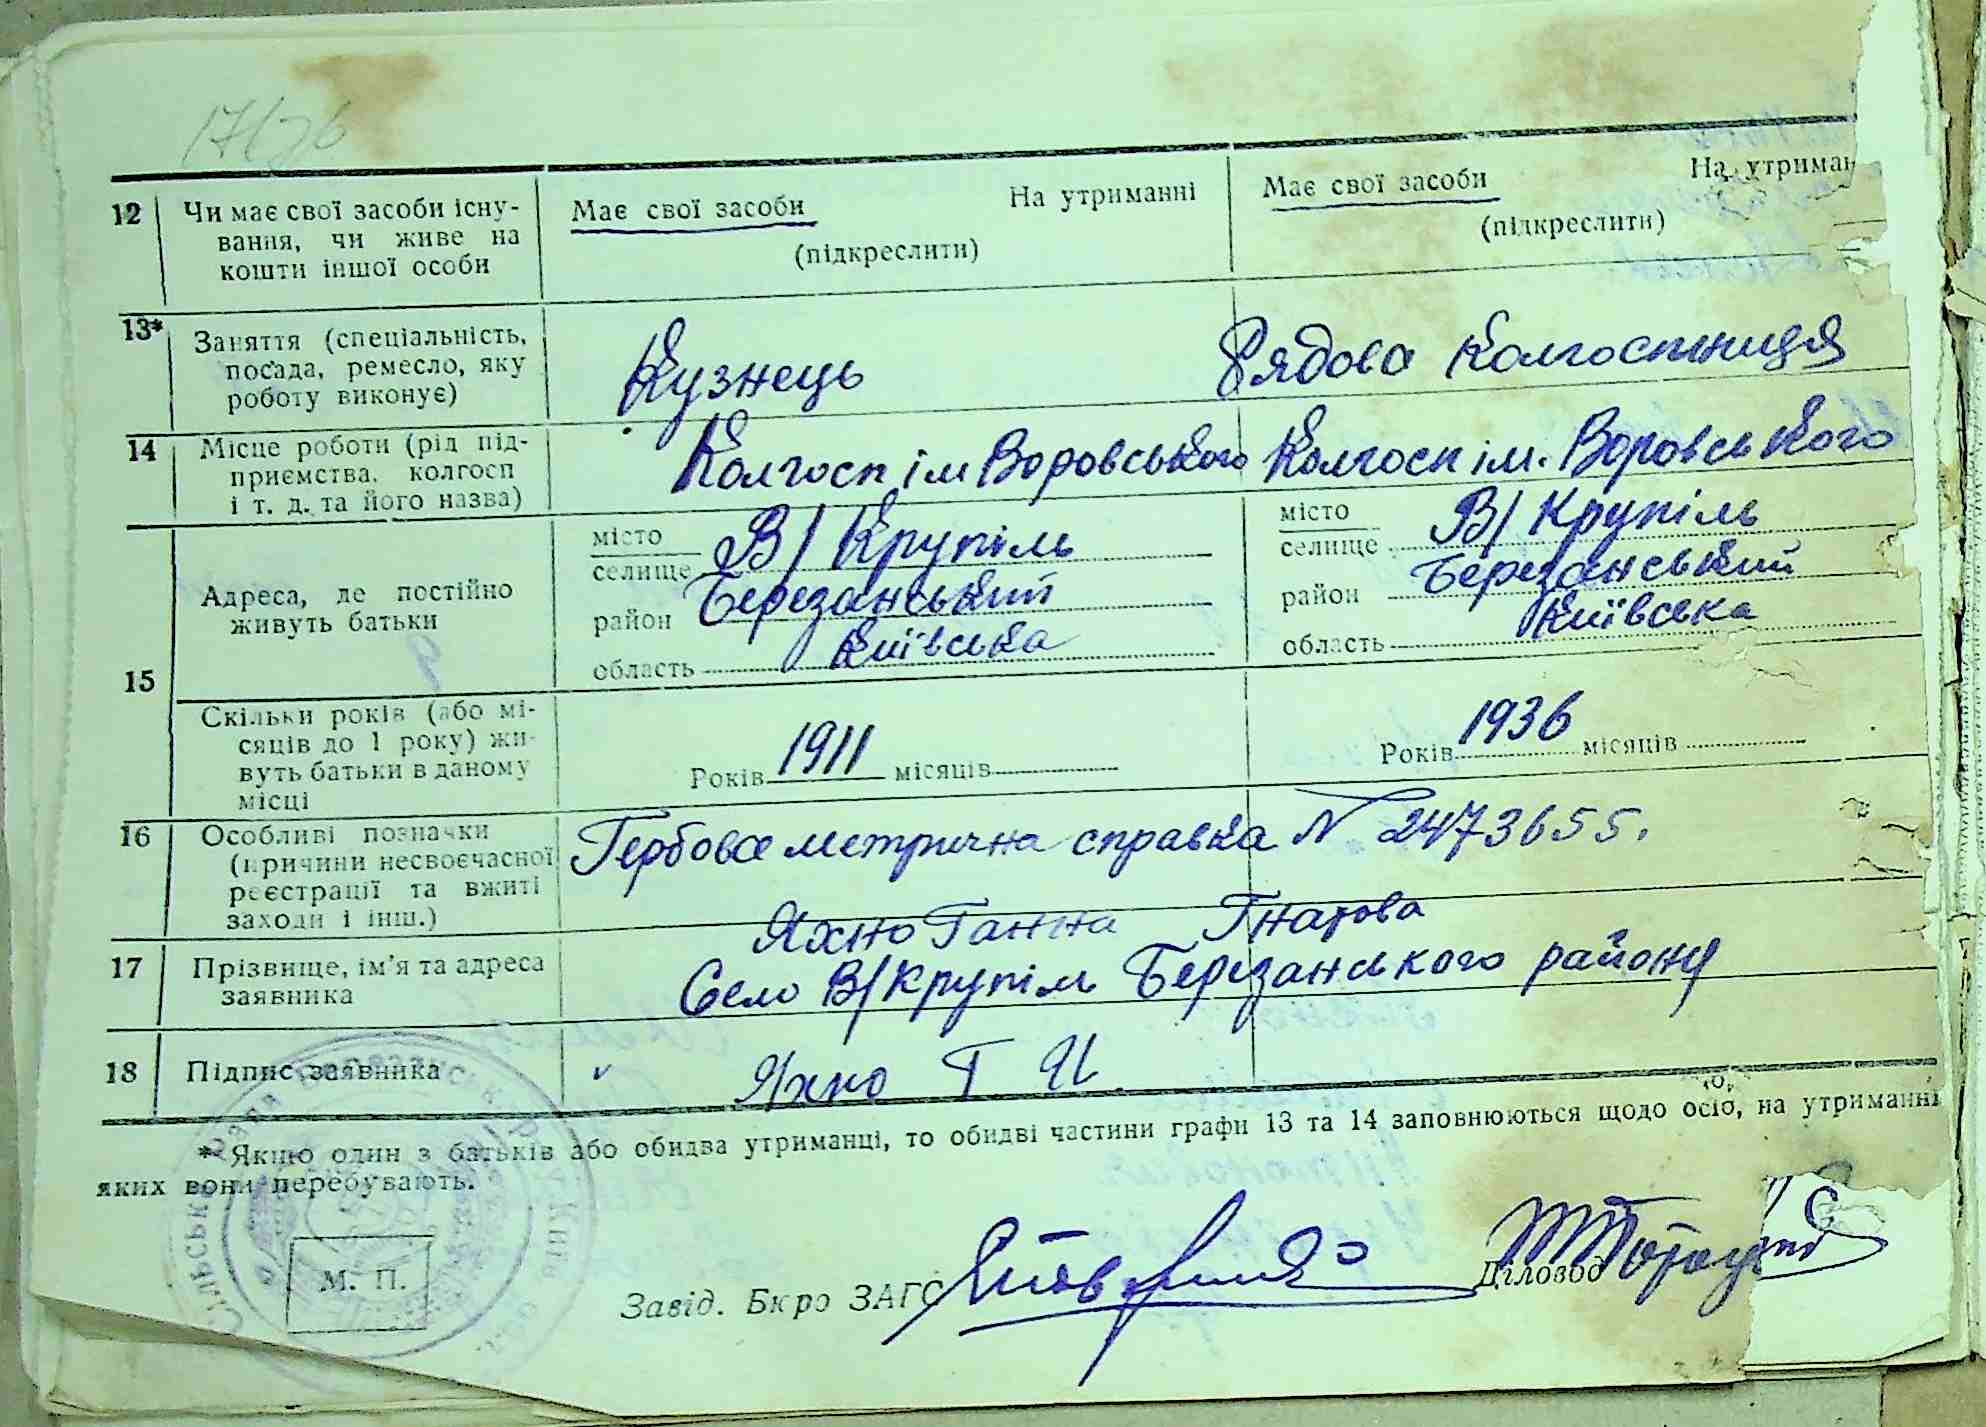 12 Чи має свої засоби існу- Має свої засоби На утриманні Має свої засоби На утриман
вання, чи живе на (підкреслити) (підкреслити)
кошти іншої особи
13* Заняття (спеціальність, Кузнець Рядова Колгостниця
посада, ремесло, яку
роботу виконує)
14 Місце роботи (рід під- Колгосп ім Воровського Колгосп ім. Воровського
приємства, колгосп
і т. д. та його назва)
15 Адреса, де постійно
живуть батьки
місто В/Крупіль місто В/Крупіль
селище селище
район Березанський район Березанський
область Київська область Київська
Скільки років (або мі- Років 1911 місяців Років 1936 місяців
сяців до 1 року) жи-
вуть батьки в даному
місці
16 Особливі позначки Гербова метрична справка N 2473655.
(причини несвоєчасної
реєстрації та вжиті
заходи і інш.)
Яхно Ганна Гнатова
17 Прізвище, ім'я та адреса Село В/Крупіль Березанського району
заявника
18 Підпис заявника Яхно Г И.
* Якщо один з батьків або обидва утриманці, то обидві частини графи 13 та 14 заповнюються щодо осіб, на утриманні
яких вони перебувають.
М. П.
Завід. Бюро ЗАГС Діловод